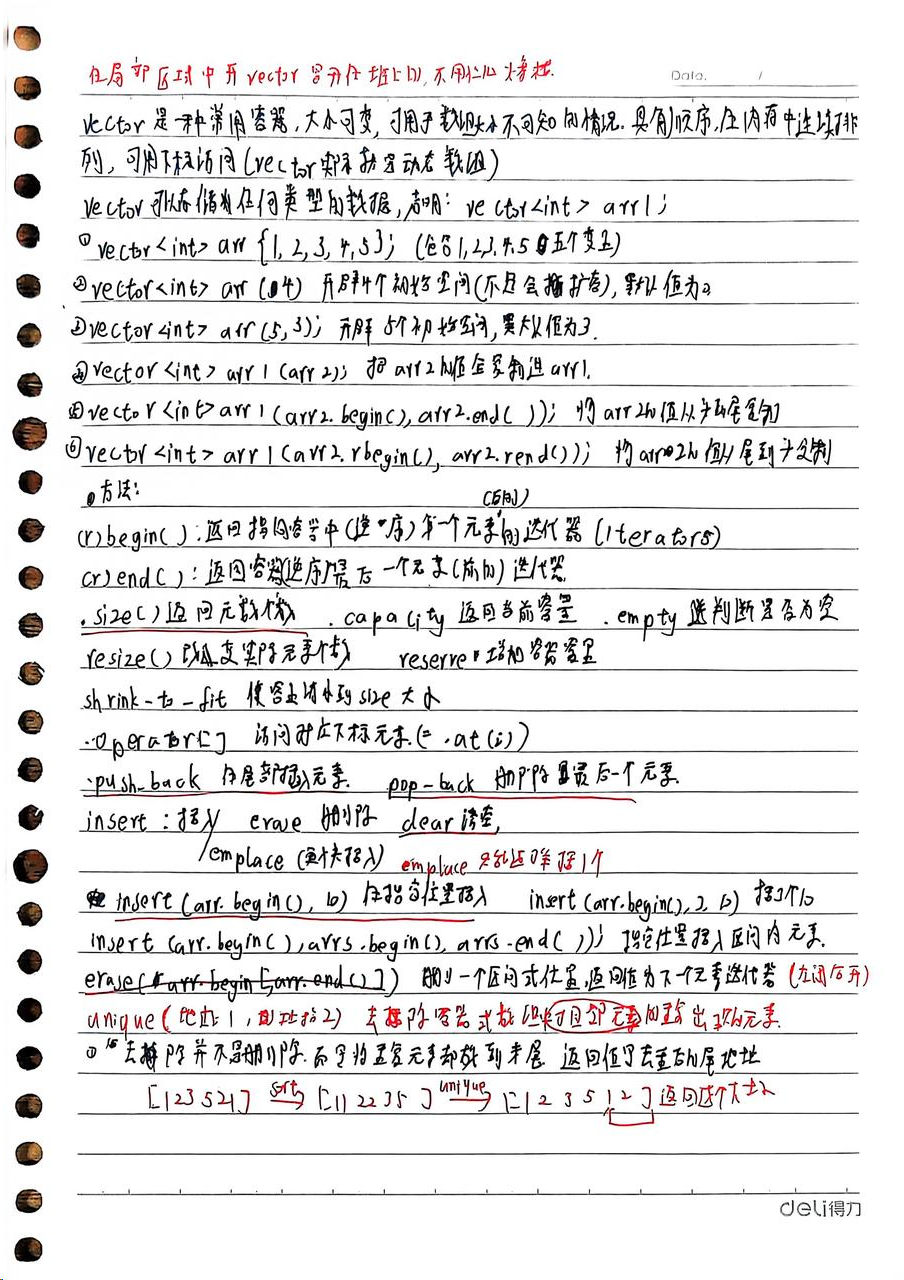 在局部区域中开vector会开在堆上的,不用担心爆栈.
Date. /
vector是一种常用容器,大小可变,可用于数组大小不可知的情况.具有顺序,在内存中连续排
列,可用下标访问(vector实际就是动态数组)
vector可以存储为任何类型的数据,声明: vector<int> arr1;
① vector<int> arr {1,2,3,4,5}; (包含1,2,3,4,5五个变量)
②vector<int> arr (4) 开辟4个初始空间(不足会扩容),默认值为0
③vector<int> arr (5,3); 开辟5个初始空间,默认值为3.
④vector<int> arr1 (arr2); 把arr2的值全复制进arr1.
⑤vector<int>arr1 (arr2.begin(), arr2.end( )); 将arr2的值从头到尾复制
⑥vector<int> arr1(arr2.rbegin(), arr2.rend()); 将arr2的值从尾到头复制
方法:
(r)begin( ):返回指向容器中(逆序)第一个元素(后的)的迭代器(iterators)
(r)end( ): 返回容器(逆序)最后一个元素(前的)迭代器
.size()返回元素个数 .capacity返回当前容量 .empty判断是否为空
resize()改变实际元素个数 reserve增加容器容量
shrink-to-fit 使容量缩小到size大小
.operator[] 访问对应下标元素(= .at(i))
.push_back 在尾部插入元素. pop-back 删除最后一个元素.
insert : 插入 erase 删除 clear清空,
emplace (更快插入) emplace 只能选择插1个
insert (arr.begin(), 10) 在指定位置插入 insert (arr.begin(), 2, 10) 插2个10
insert (arr.begin( ), arrs.begin(), arrs.end( )); 指定位置插入区间内元素.
erase( arr.begin [,arr.end()]) 删一个区间或位置,返回值为下一个元素迭代器 (左闭右开)
unique(地址1, 地址2) 去除容器或数组中相邻元素的重复出现的元素.
① "去除"并不是删除.而是将重复元素都放到末尾 返回值是去重后的尾地址
[1 2 3 5 2 1] sort→ [1 1 2 2 3 5 ] unique→ [1 2 3 5 1 2 ] 返回这个地址
deli得力